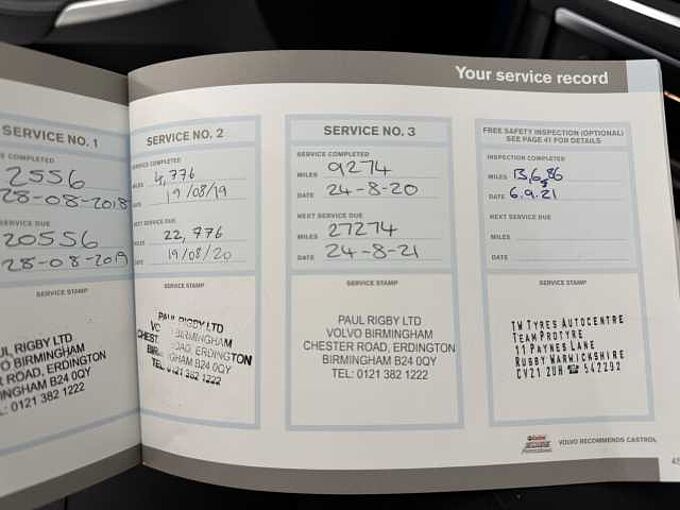 Your service record
SERVICE NO. 1
COMPLETED
2556
28-08-2018
SERVICE DUE
20556
28-08-2019
SERVICE STAMP
UL RIGBY LTD
O BIRMINGHAM
R ROAD, ERDINGTON
INGHAM B24 0QY
L: 0121 382 1222
SERVICE NO. 2
SERVICE COMPLETED
MILES 4,776
DATE 19/08/19
NEXT SERVICE DUE
MILES 22,776
DATE 19/08/20
SERVICE STAMP
PAUL RIGBY LTD
BIRMINGHAM
ERDINGTON
GHAM B24 0QY
TEL: 0121 382 1222
SERVICE NO. 3
SERVICE COMPLETED
MILES 9274
DATE 24-8-20
NEXT SERVICE DUE
MILES 27274
DATE 24-8-21
SERVICE STAMP
PAUL RIGBY LTD
VOLVO BIRMINGHAM
CHESTER ROAD, ERDINGTON
BIRMINGHAM B24 0QY
TEL: 0121 382 1222
FREE SAFETY INSPECTION (OPTIONAL)
SEE PAGE 41 FOR DETAILS
INSPECTION COMPLETED
MILES 13,686
DATE 6.9.21
NEXT SERVICE DUE
MILES
DATE
SERVICE STAMP
TW TYRES AUTOCENTRE
TEAM PROTYRE
11 PAYNES LANE
RUGBY WARWICKSHIRE
CV21 2UH ☎ 542292
Castrol
VOLVO RECOMMENDS CASTROL